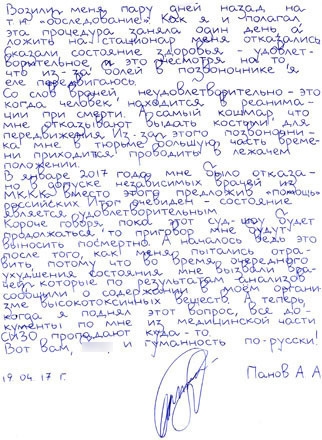 Возили меня пару дней назад на
т.н. «обследование». Как я и полагал
эта процедура заняла один день а
ложить на стационар меня отказались
сказали состояние здоровья - удовлет-
ворительное и это несмотря на то
что из-за болей в позвоночнике я
еле передвигаюсь.
Со слов врачей неудовлетворительно - это
когда человек находится в реанима-
ции при смерти. И самый кошмар что
мне отказывают выдать костыли для
передвижения. Из-за этого позвоночни-
ка мне в тюрьме большую часть време-
ни приходится проводить в лежачем
положении.
В январе 2017 года мне было отказа-
но в допуске независимых врачей из
МККК вместо этого предложив «помощь»
российских. Итог очевиден - состояние
является удовлетворительным
Короче говоря, пока этот суд-шоу будет
продолжаться то приговор мне будут
выносить посмертно. А началось ведь это
после того, как меня пытались отра-
вить потому что во время очередного
ухудшения состояния мне вызвали вра-
чей которые по результатам анализов
сообщили о содержании в моём органи-
зме высокотоксичных веществ. А теперь,
когда я поднял этот вопрос, все до-
кументы по мне из медицинской части
СИЗО пропадают куда-то.
Вот вам, и гуманность по-русски!
19.04.17г. Панов А.А